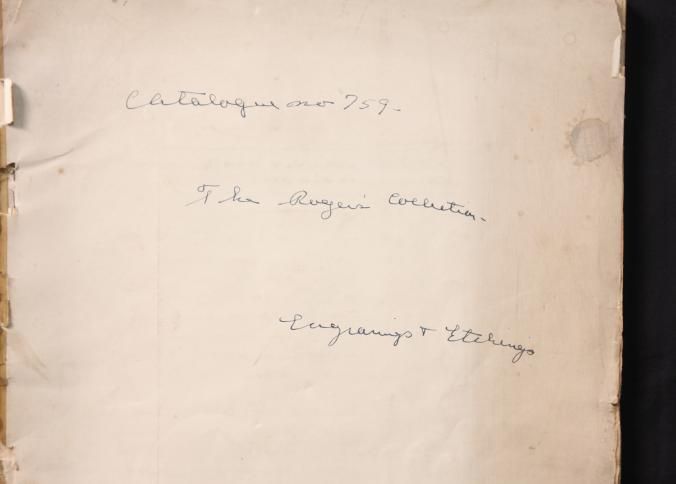 Catalogue no 759.
The Rogers Collection.
Engravings & Etchings